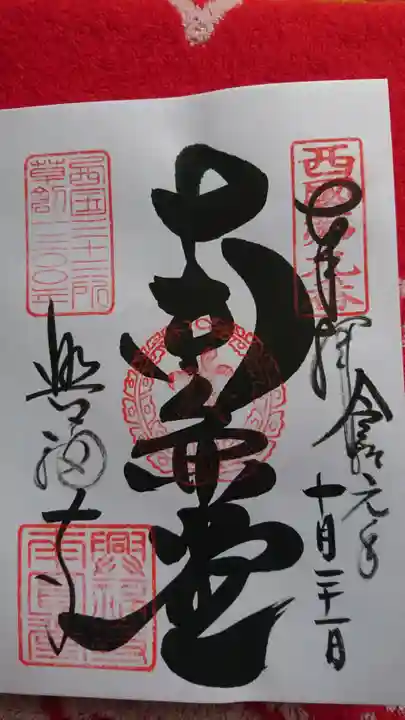 奉拝
令和元年
十月二十一日
西国第九番
南円堂
西国三十三所
草創一三〇〇年
興福寺